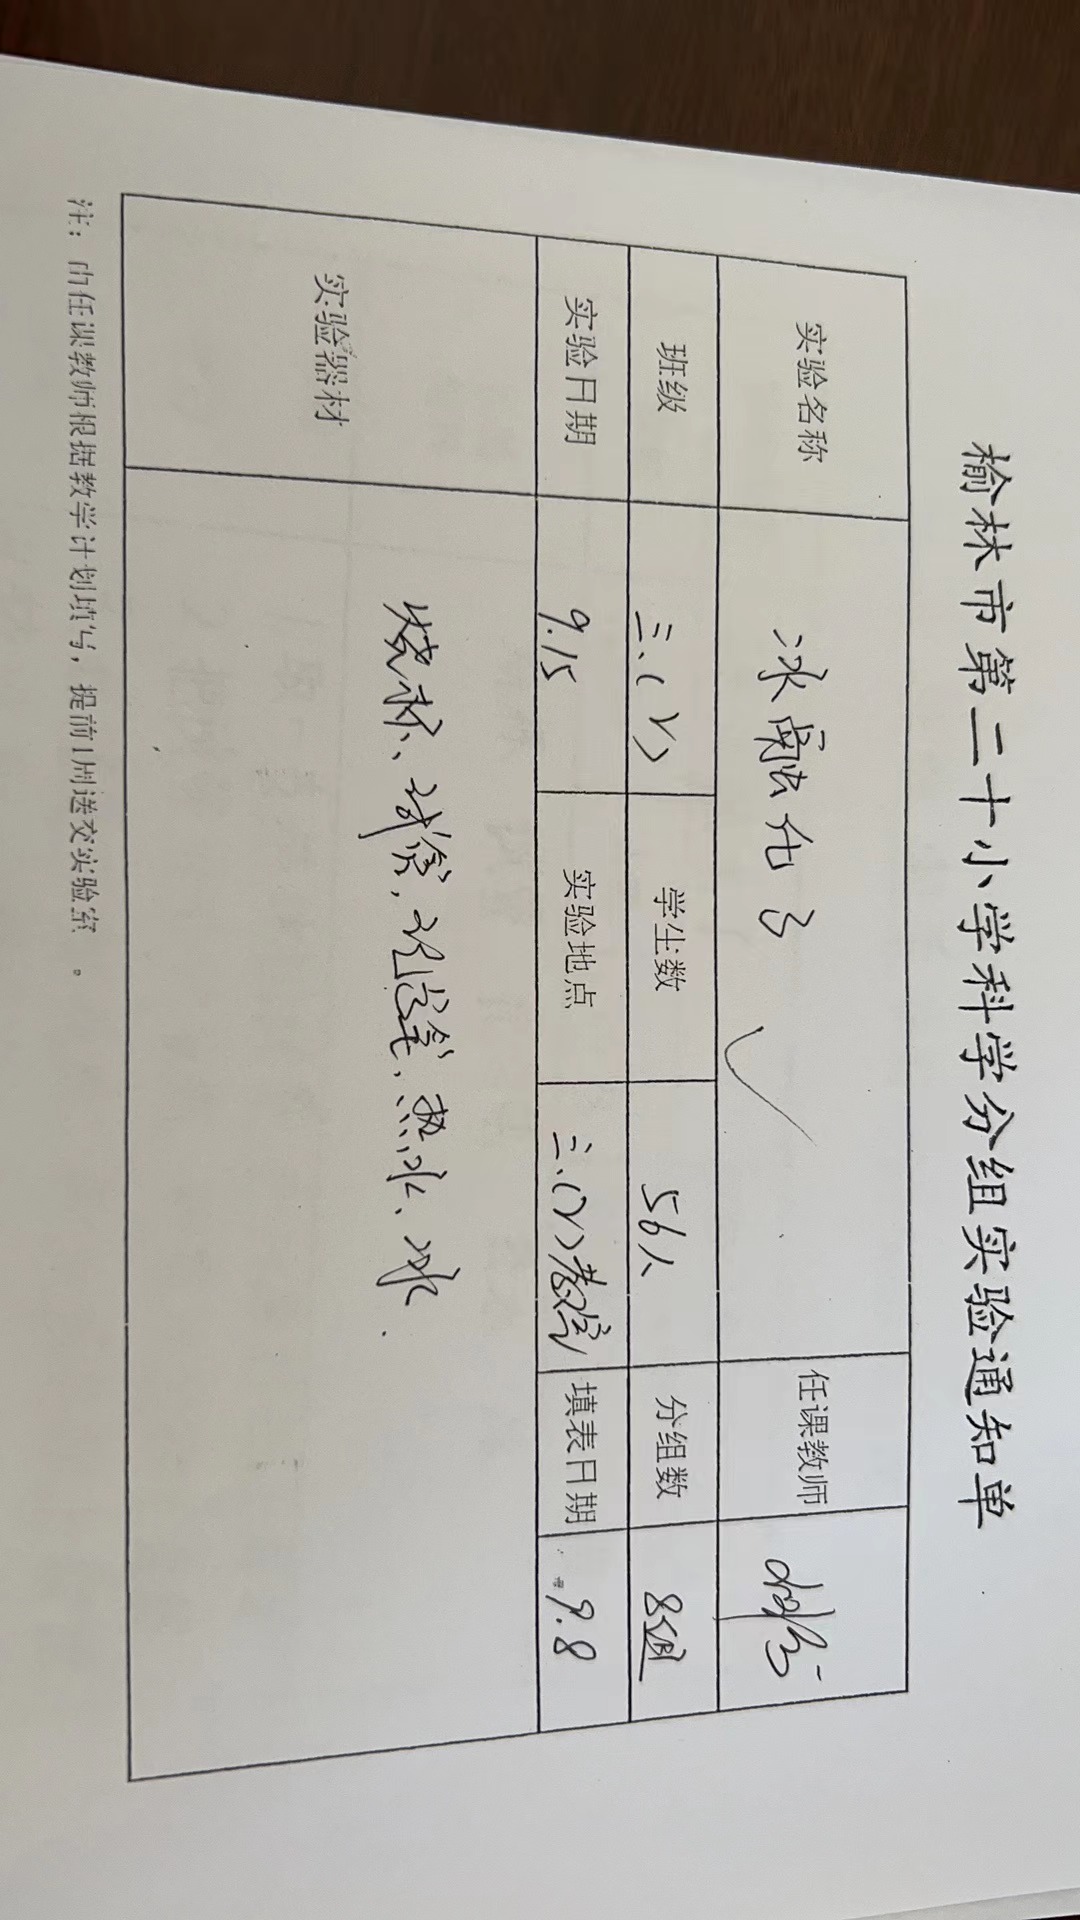 榆林市第二十小学科学分组实验通知单
实验名称 冰融化了 任课教师
班级 三、(2) 学生数 56人 分组数 8组
实验日期 9.15 实验地点 三、(2)教室 填表日期 9.8
实验器材 烧杯、试管、记号笔、热水、冰.
注：由任课教师根据教学计划填写，提前1周送交实验室。